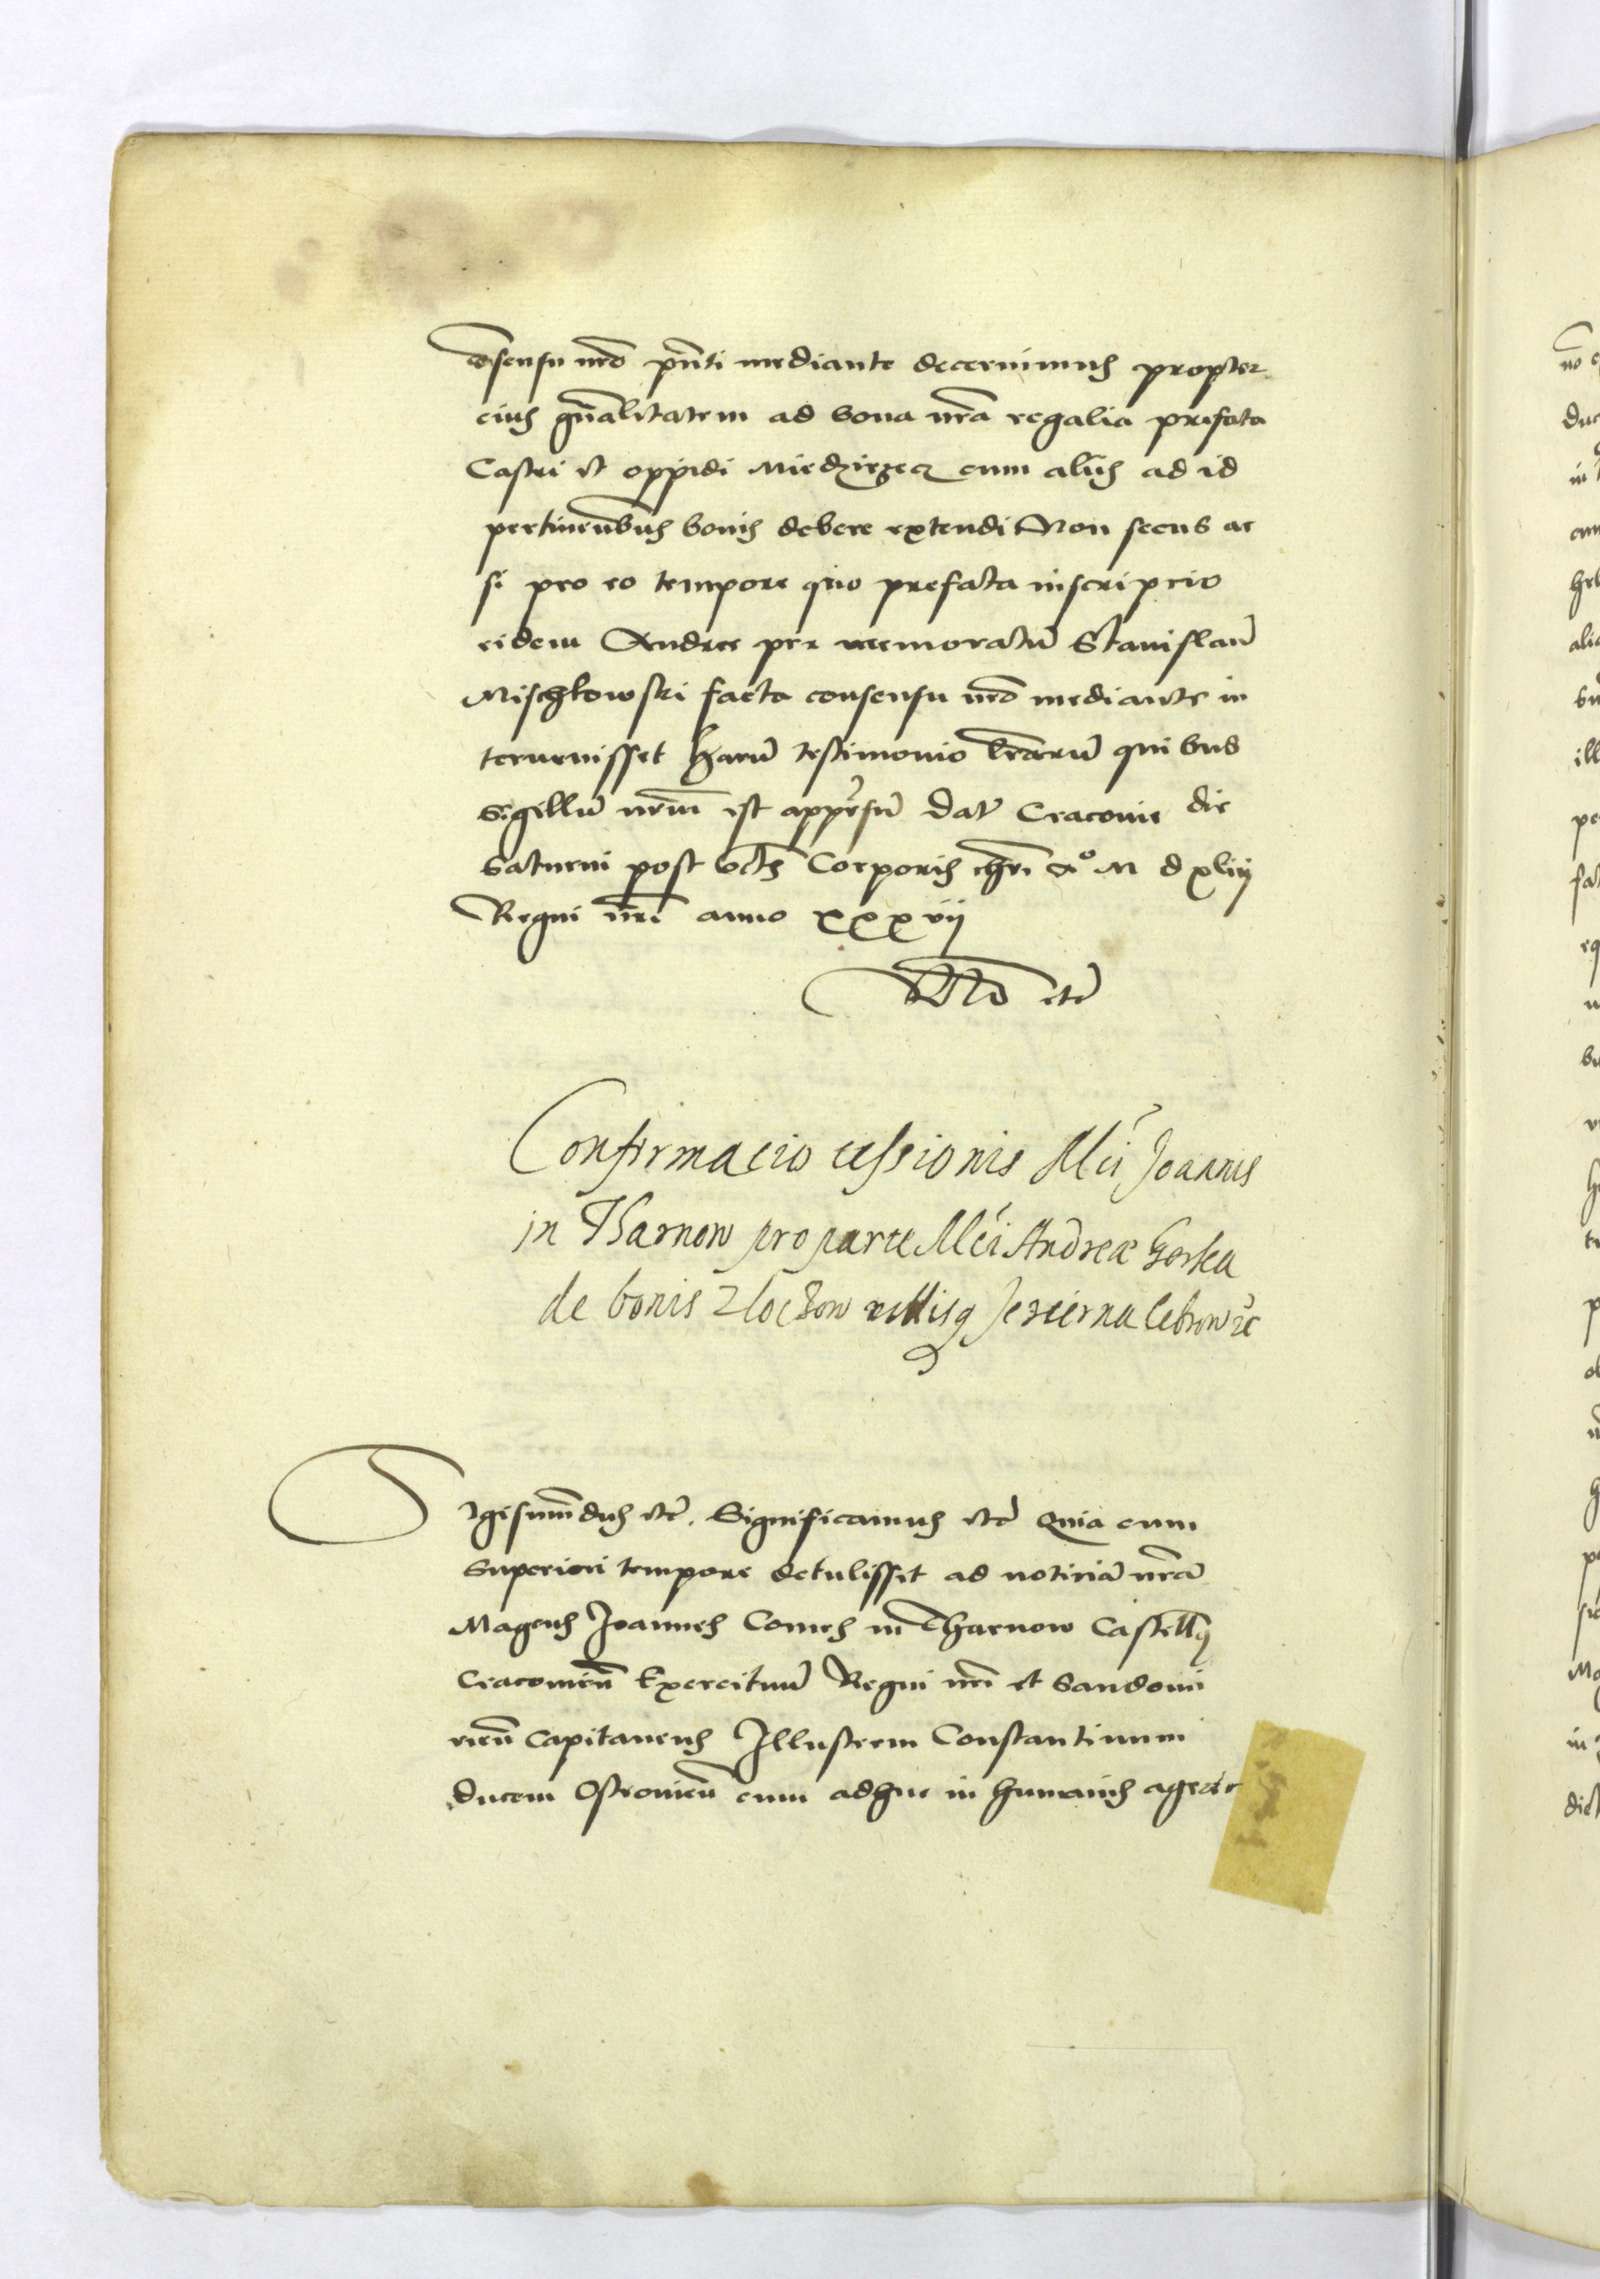 consensu nrõ pñti mediante decernimus propter
eius gñalitatem ad bona nrã regalia prefata
Castri et oppidi Miedzirzecz cum aliis ad id
pertineñ bus bonis debere extendi Non secus ac
si pro eo tempore quo prefata inscripcio
eidem Andree per memoratũ Stanislaũ
Mischkowski facta consensu nrõ mediante in
teruenisset Harũ testimonio lrãrũ quibus
Sigillũ nrũm est appressũ Dat Cracovie die
Saturni post octs Corporis chri Aº M d xliij
Regni nri anno xxxvij
etc
Confirmacio cessionis Mci Joannis
in Tharnow pro parte Mci Andreæ Gorka
de bonis Zloczow villisq Jezierna Cebrow etc
Sigismũdus etc. Significamus etc Quia cum
Superiori tempore detulisset ad noticiã nrãm
Magcus Joannes Comes in Tharnow Castellus
Cracovieñ Exercituũ Regni nri et Sandomi
rieñ Capitaneus Illustrem Constantinum
ducem Ostrovieñ cum adhuc in humanis ageret